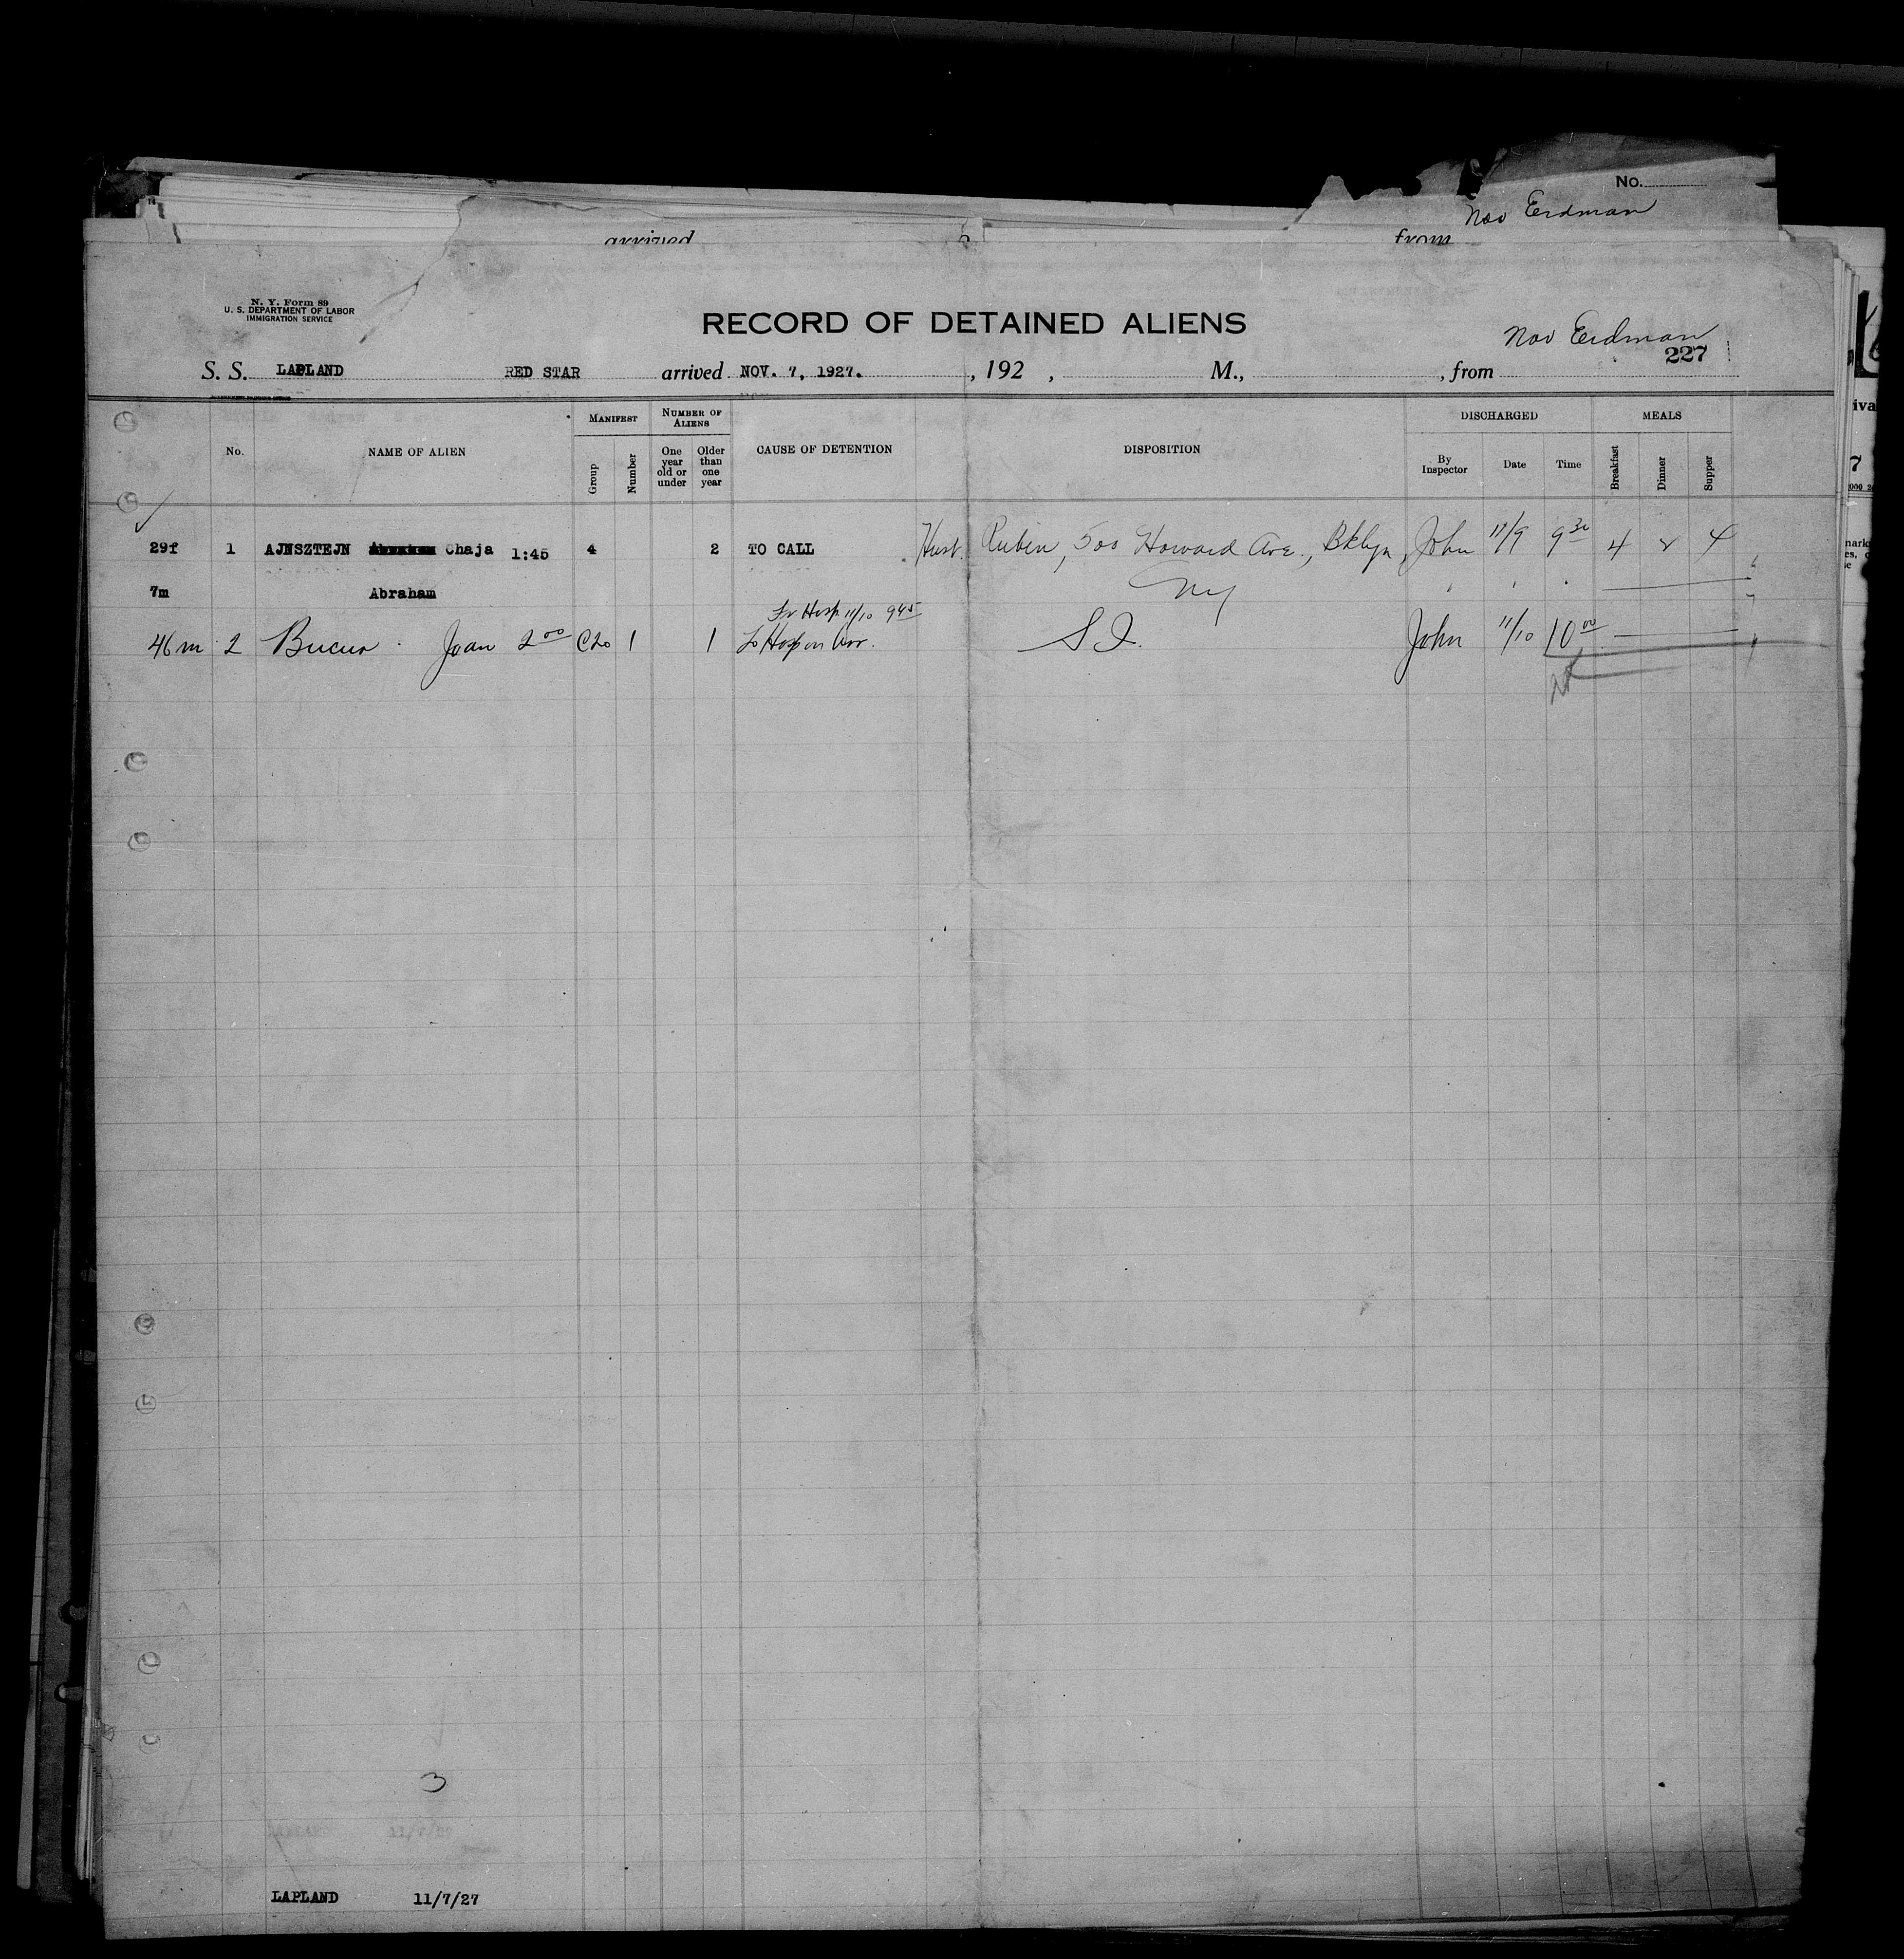 No.
Nov Erdman
arrived from
N. Y. Form 89
U. S. DEPARTMENT OF LABOR
IMMIGRATION SERVICE
RECORD OF DETAINED ALIENS
Nov Erdman
227
S. S. LAPLAND RED STAR arrived NOV. 7, 1927. , 192 , M., , from
No.
NAME OF ALIEN
MANIFEST
Group
Number
NUMBER OF ALIENS
One year old or under
Older than one year
CAUSE OF DETENTION
DISPOSITION
DISCHARGED
By Inspector
Date
Time
MEALS
Breakfast
Dinner
Supper
29f 1 AJNSZTEJN Abraham Chaja 1:45 4 2 TO CALL Husb. Rubin, 500 Howard Ave., Bklyn, John 11/9 9 30 4 8 4
7m Abraham NY
Fr Hosp 11/10 9 45
46m 2 Bucur Joan 2 00 1 1 To Hosp on Arr. S I. John 11/10 10 00
3
LAPLAND 11/7/27